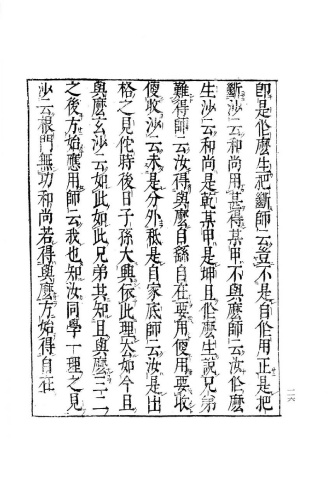 即是作麼生把斷師云豈不是自作用正是把
斷沙云和尚用甚得某甲不與麼師云汝作麼
生沙云和尚是乾某甲是坤且作麼生說兄弟
難得師云汝得與麼自繇自在要用便用要收
便收沙云未是分外秪是自家底師云汝是出
格之見佗時後日子孫大興依此理太如今且
與麼玄沙云如此如此兄弟共知且與麼三二
之後方始應用師云我也知汝同學一理之見
沙云根門無功和尚若得與麼方始得自在
二六